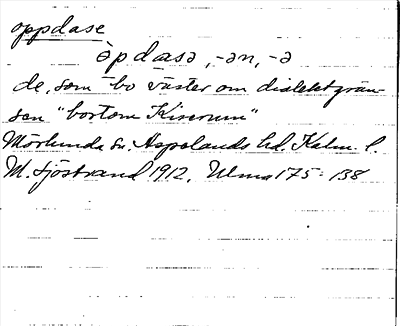 oppdase
òpdasə, -ən, -ə
de, som bo väster om dialektgrän-
sen "bortom Kiserum"
Mörlunda sn. Aspelands hd. Kalm. l.
M. Sjöstrand 1912. Ulma 175:138